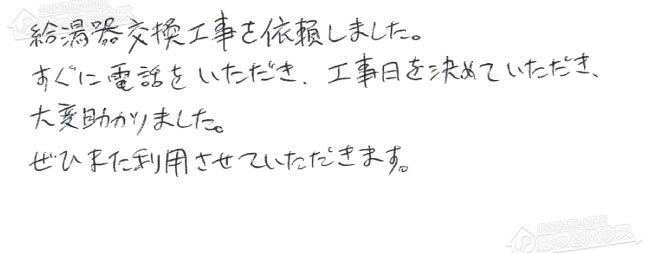 給湯器交換工事を依頼しました。
すぐに電話をいただき、工事日を決めていただき、
大変助かりました。
ぜひまた利用させていただきます。